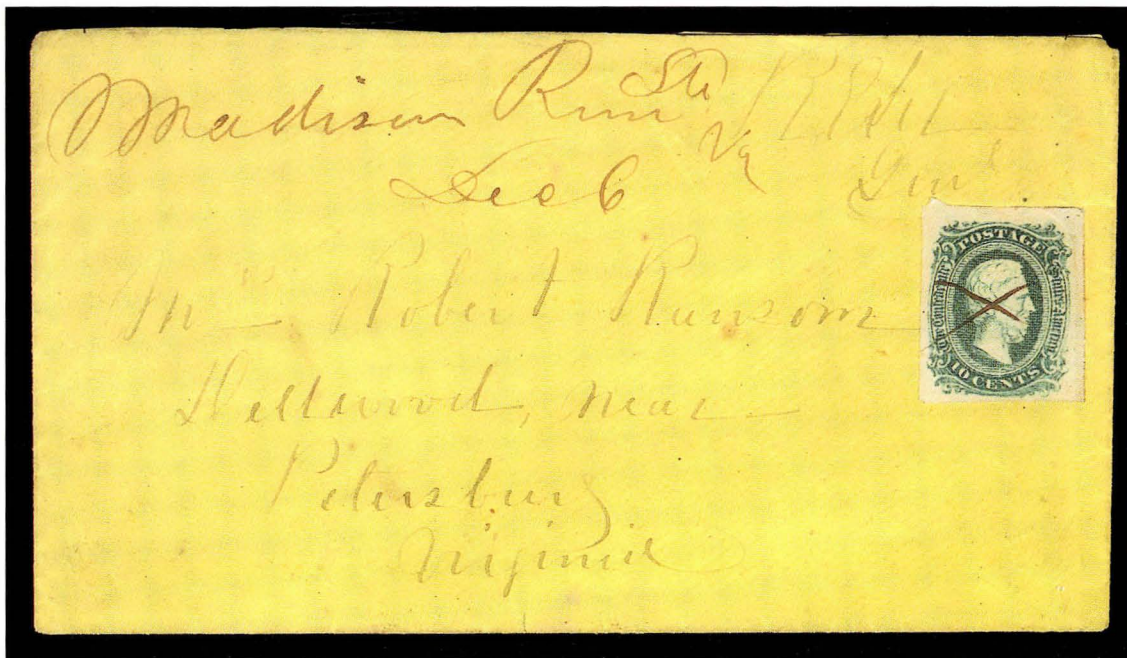 Madison Run Sta Va
Dec 6
Mrs Robert Ransom
Dellwood, near
Petersburg
Virginia
POSTAGE
The Confederate
States America
10 CENTS